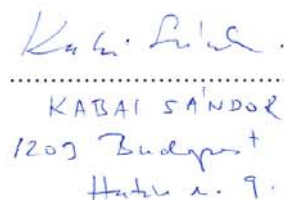 Kabai Sándor
KABAI SÁNDOR
1209 Budapest
u. 9.